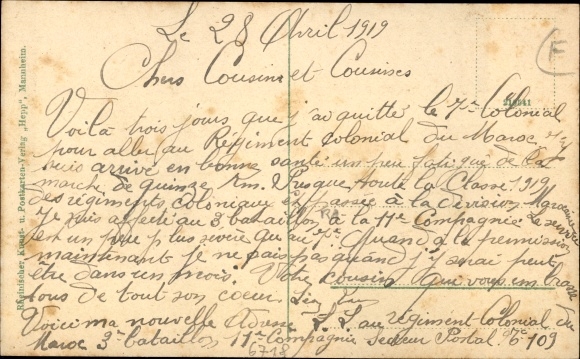 Le 28 Avril 1919
Chers Cousins et Cousines
Voilà trois jours que j'ai quitté le 7e Colonial
pour aller au Régiment Colonial du Maroc. Je
suis arrivé en bonne santé un peu fatigué de la
marche de quinze Km. Presque toute la Classe 1919
des régiments coloniaux est passée à la division Marocaine
Je suis affecté au 3e bataillon à la 11e Compagnie Le service
est un peu plus sévère qu'au 7e. Quand à la permission
maintenant je ne sais pas quand j'y serai peut
être dans un mois. Votre cousin qui vous embrasse
tous de tout son coeur.
Voici ma nouvelle Adresse L. L. au régiment Colonial du
Maroc 3e bataillon 11e Compagnie secteur Postal N° 109
6718
E
Rheinischer Kunst- u. Postkarten-Verlag „Hepp", Mannheim.